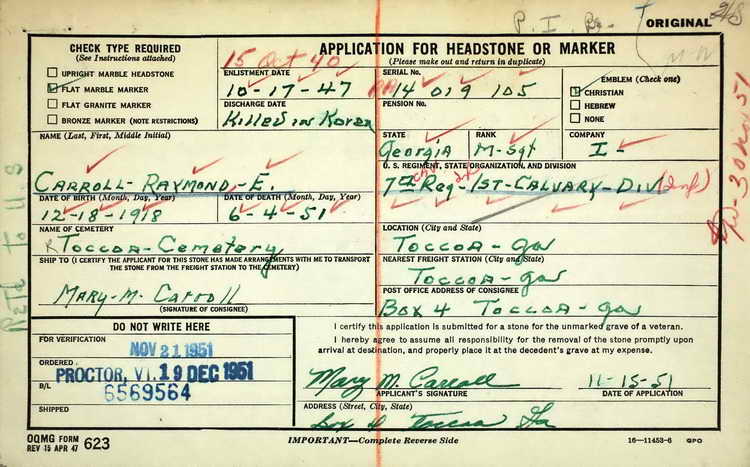 P. I. Br.
ORIGINAL
CHECK TYPE REQUIRED
(See Instructions attached)
UPRIGHT MARBLE HEADSTONE
FLAT MARBLE MARKER
FLAT GRANITE MARKER
BRONZE MARKER (NOTE RESTRICTIONS)
15 Oct 40
APPLICATION FOR HEADSTONE OR MARKER
(Please make out and return in duplicate)
ENLISTMENT DATE
10-17-47
DISCHARGE DATE
Killed in Korea
SERIAL NO.
14 019 105
PENSION NO.
EMBLEM (Check one)
CHRISTIAN
HEBREW
NONE
STATE
Georgia
RANK
M-Sgt
COMPANY
I-
NAME (Last, First, Middle Initial)
CARROLL-RAYMOND-E.
U. S. REGIMENT, STATE ORGANIZATION, AND DIVISION
7th Cav Reg-1ST-CALVARY-DIV (Inf)
DATE OF BIRTH (Month, Day, Year)
12-18-1918
DATE OF DEATH (Month, Day, Year)
6-4-51
NAME OF CEMETERY
Toccoa-Cemetery
LOCATION (City and State)
Toccoa-ga
SHIP TO (I CERTIFY THE APPLICANT FOR THIS STONE HAS MADE ARRANGEMENTS WITH ME TO TRANSPORT
THE STONE FROM THE FREIGHT STATION TO THE CEMETERY)
Mary-M-Carroll
(SIGNATURE OF CONSIGNEE)
NEAREST FREIGHT STATION (City and State)
Toccoa-ga
POST OFFICE ADDRESS OF CONSIGNEE
Box 4 Toccoa-ga
DO NOT WRITE HERE
FOR VERIFICATION
NOV 21 1951
ORDERED
PROCTOR, VT. 19 DEC 1951
B/L
6569564
SHIPPED
I certify this application is submitted for a stone for the unmarked grave of a veteran.
I hereby agree to assume all responsibility for the removal of the stone promptly upon
arrival at destination, and properly place it at the decedent's grave at my expense.
Mary M. Carroll
11-15-51
APPLICANT'S SIGNATURE
DATE OF APPLICATION
ADDRESS (Street, City, State)
Box 4 Toccoa Ga
OQMG FORM
REV 15 APR 47
623
IMPORTANT—Complete Reverse Side
16—11453-6 GPO
Retd To U.S